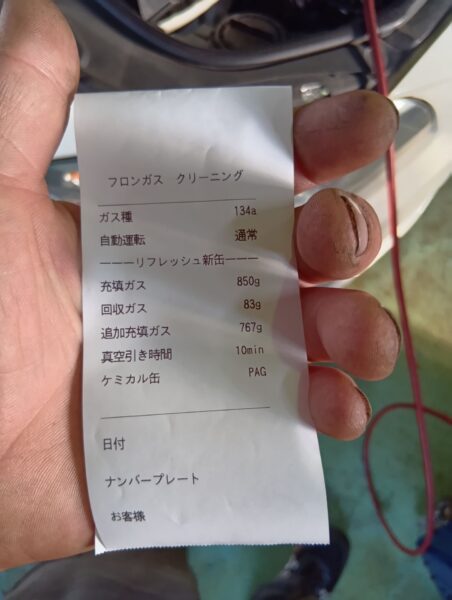 フロンガス クリーニング
ガス種 134a
自動運転 通常
ーーーリフレッシュ新缶ーーー
充填ガス 850g
回収ガス 83g
追加充填ガス 767g
真空引き時間 10min
ケミカル缶 PAG
日付
ナンバープレート
お客様